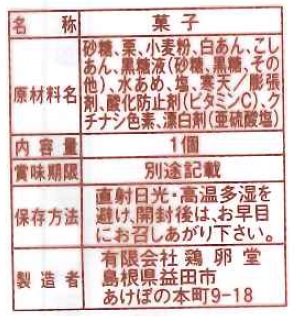 名称 菓子
原材料名 砂糖、栗、小麦粉、白あん、こし
あん、黒糖液(砂糖、黒糖、その
他)、水あめ、塩、寒天／膨張
剤、酸化防止剤(ビタミンC)、ク
チナシ色素、漂白剤(亜硫酸塩)
内容量 1個
賞味期限 別途記載
保存方法 直射日光・高温多湿を
避け、開封後は、お早目
にお召しあがり下さい。
製造者 有限会社 鶏卵堂
島根県益田市
あけぼの本町9-18